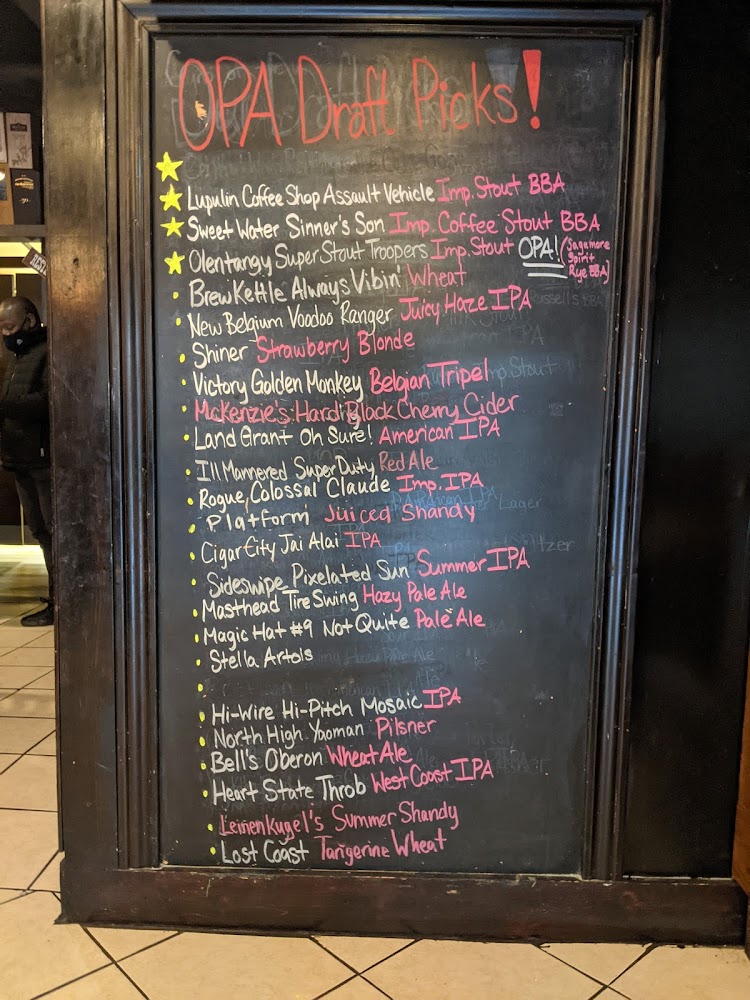 OPA Draft Picks!
Lupulin Coffee Shop Assault Vehicle Imp. Stout BBA
Sweet Water Sinner's Son Imp. Coffee Stout BBA
Olentangy Super Stout Troopers Imp. Stout OPA! (Sagamore Spirit Rye BBA)
BrewKettle Always Vibin' Wheat
New Belgium Voodoo Ranger Juicy Haze IPA
Shiner Strawberry Blonde
Victory Golden Monkey Belgian Tripel
McKenzie's Hard Black Cherry Cider
Land Grant Oh Sure! American IPA
Ill Mannered Super Duty Red Ale
Rogue Colossal Claude Imp. IPA
Platform Juiced Shandy
Cigar City Jai Alai IPA
Sideswipe Pixelated Sun Summer IPA
Masthead Tire Swing Hazy Pale Ale
Magic Hat #9 Not Quite Pale Ale
Stella Artois
Hi-Wire Hi-Pitch Mosaic IPA
North High Yaoman Pilsner
Bell's Oberon Wheat Ale
Heart State Throb West Coast IPA
Leinenkugel's Summer Shandy
Lost Coast Tangerine Wheat